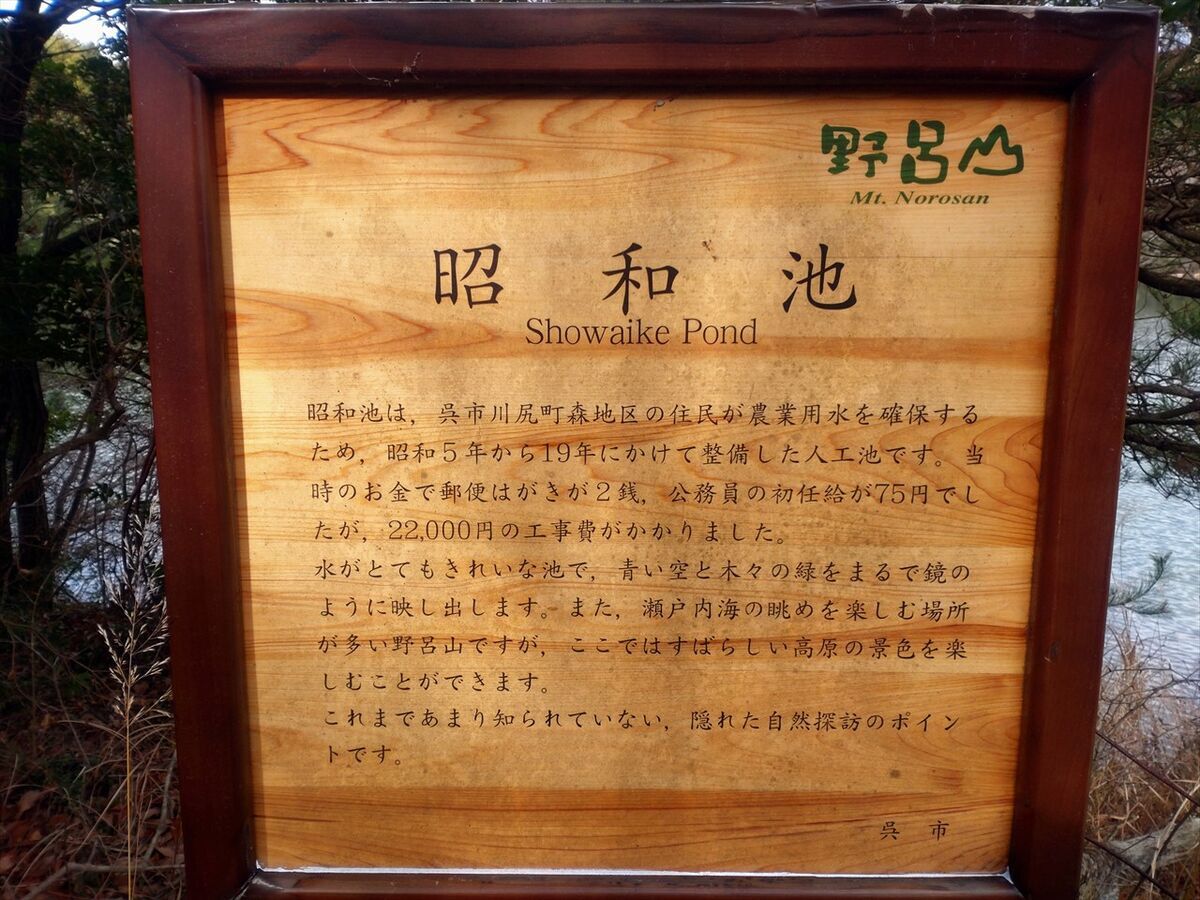 野呂山
Mt. Norosan
昭和池
Showaike Pond
昭和池は，呉市川尻町森地区の住民が農業用水を確保する
ため，昭和５年から19年にかけて整備した人工池です。当
時のお金で郵便はがきが２銭，公務員の初任給が75円でし
たが，22,000円の工事費がかかりました。
水がとてもきれいな池で，青い空と木々の緑をまるで鏡の
ように映し出します。また，瀬戸内海の眺めを楽しむ場所
が多い野呂山ですが，ここではすばらしい高原の景色を楽
しむことができます。
これまであまり知られていない，隠れた自然探訪のポイン
トです。
呉市